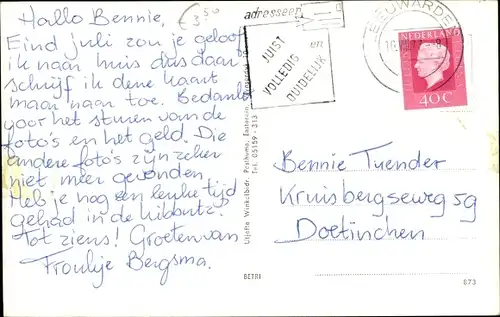 Hallo Bennie,
Eind juli zou je geloof
ik naar huis dus daar
schrijf ik deze kaart
maar naar toe. Bedankt
voor het sturen van de
foto's en het geld. Die
andere foto's zijn zeker
niet meer gevonden.
Heb je nog een leuke tijd
gehad in de kibboutz?
Tot ziens! Groeten van
Froukje Bergsma.
350
adresseer
JUIST
VOLLEDIG en
DUIDELIJK
LEEUWARDEN
NEDERLAND
40c
Bennie Tuender
Kruisbergseweg 59
Doetinchem
Tel. 05159 - 313
BETRI
873